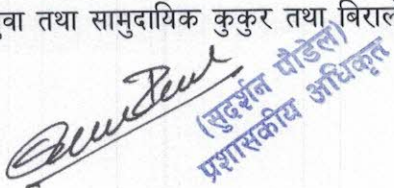 वा तथा सामुदायिक कुकुर तथा बिराल
(सुदर्शन पौडेल)
प्रशासकीय अधिकृत